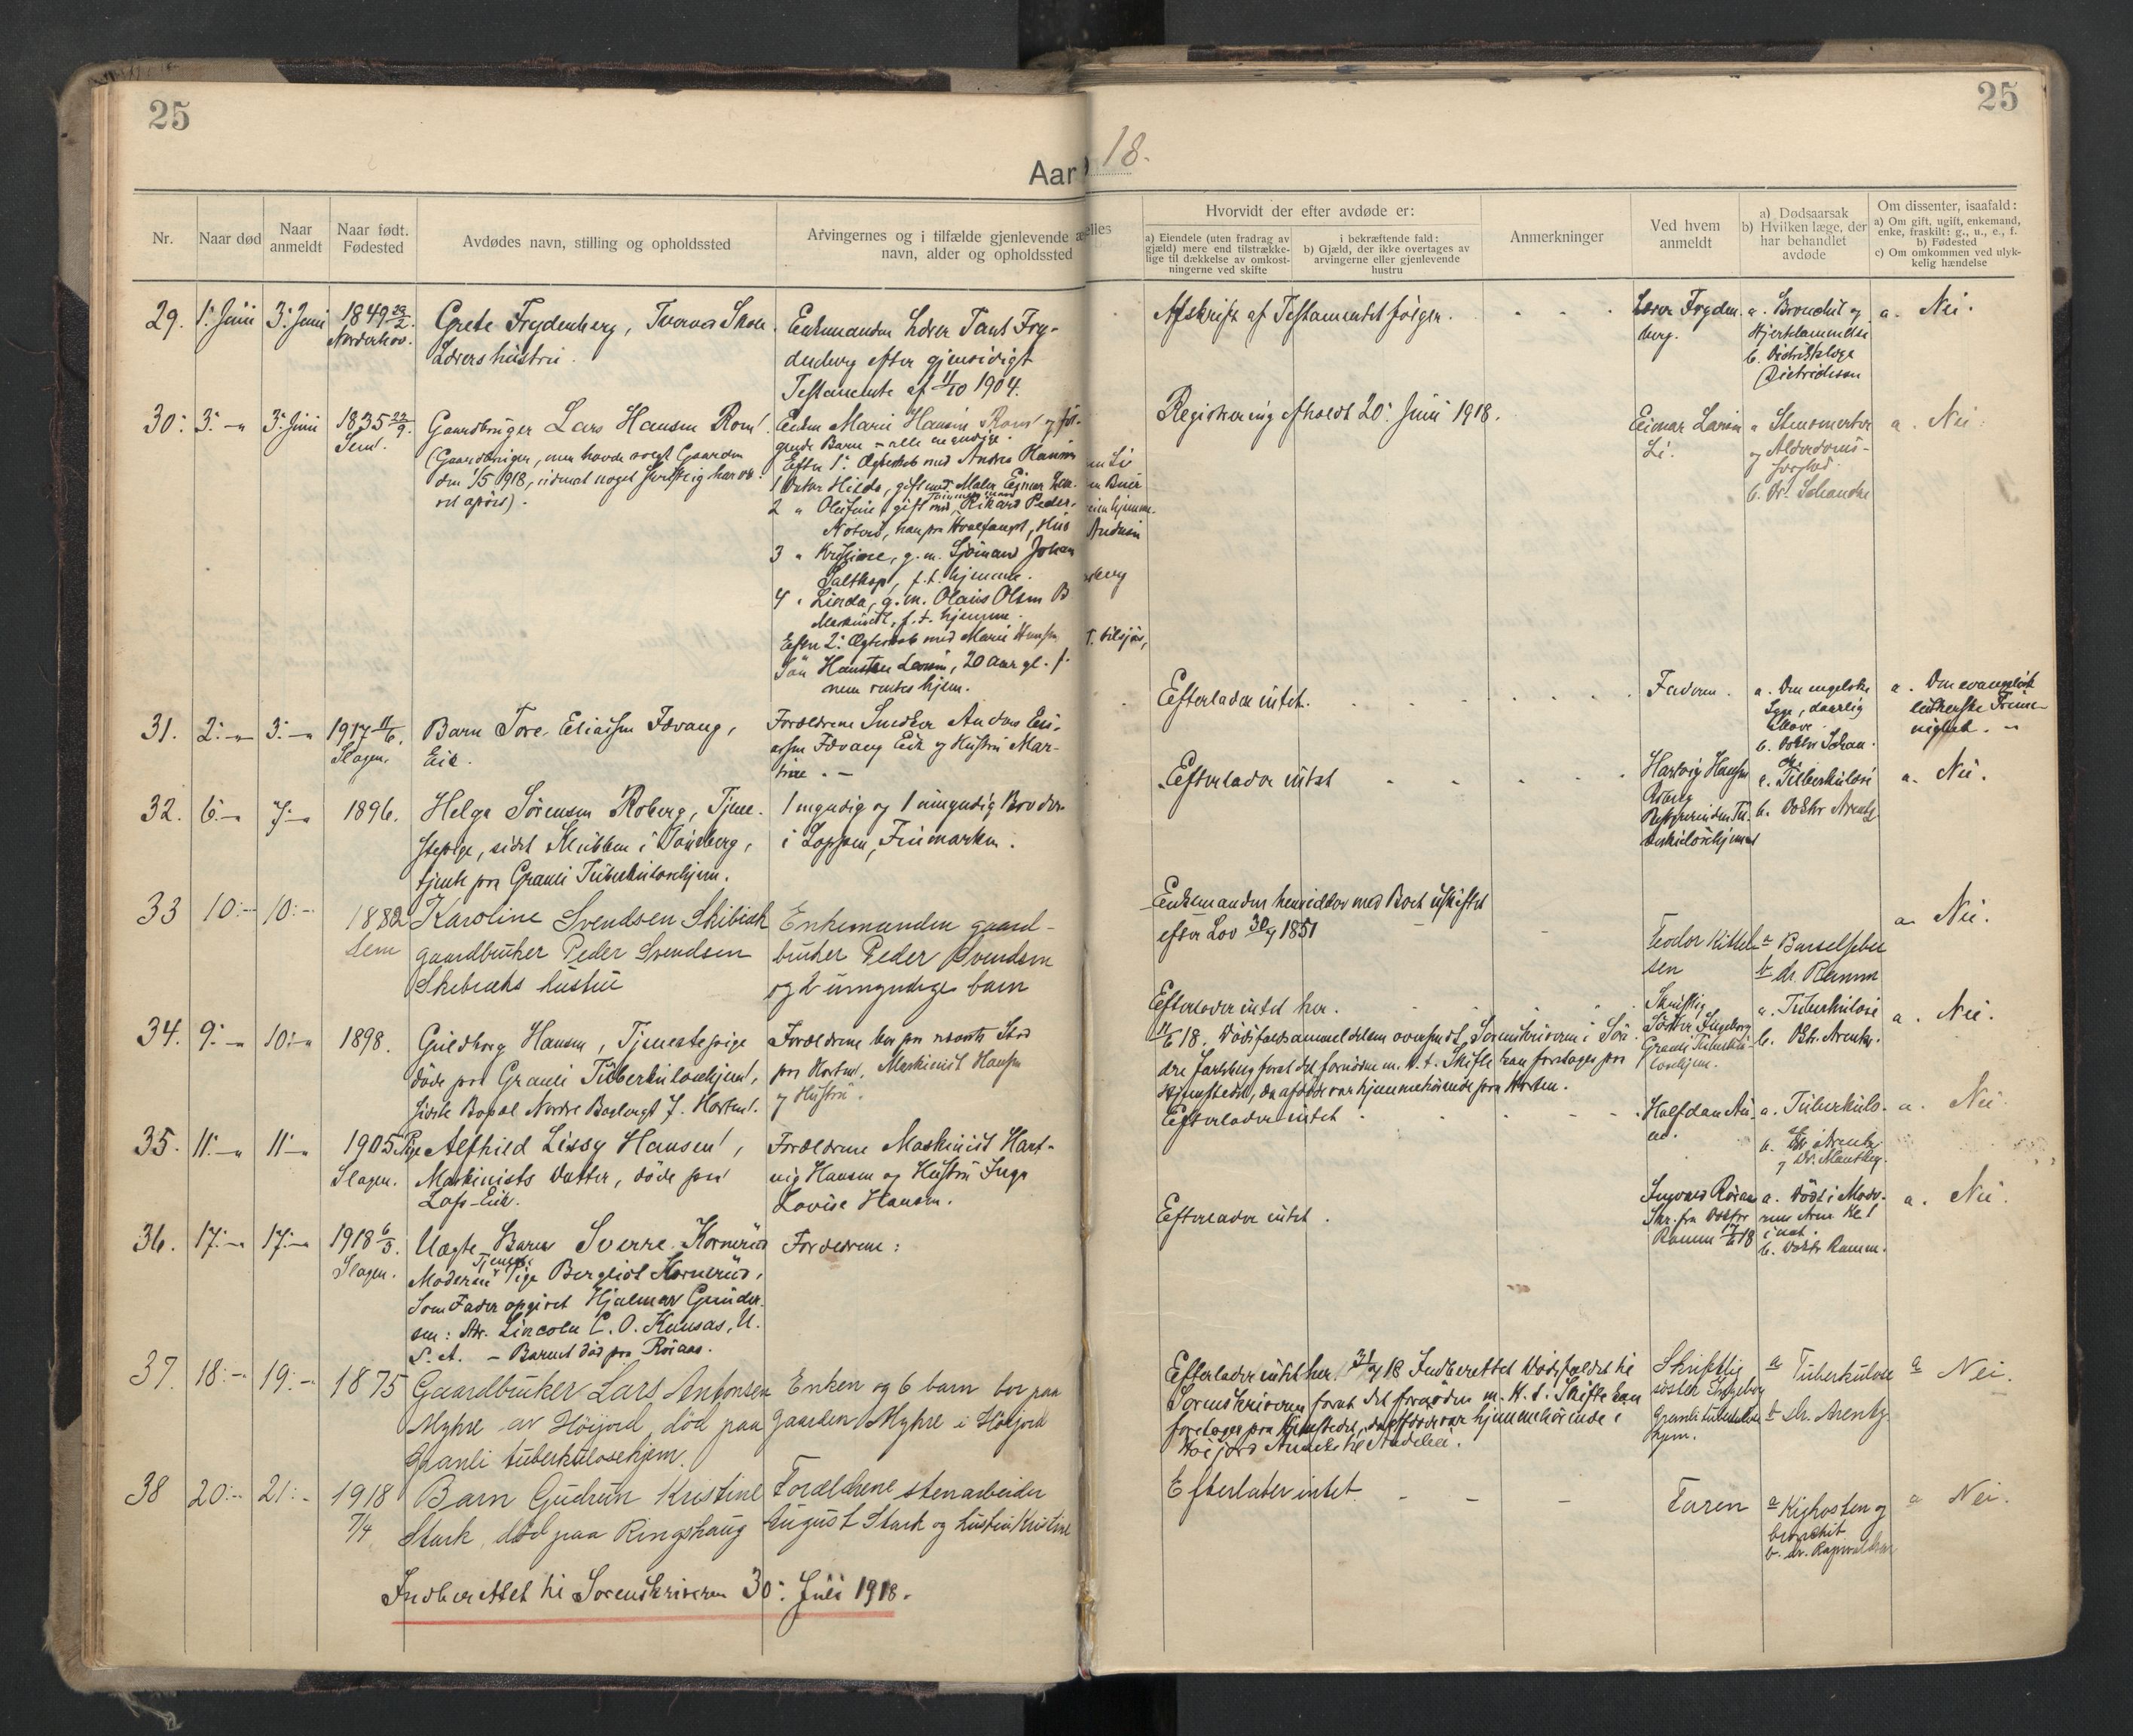 25
25
Aar 18.
Nr.
Naar død
Naar anmeldt
Naar født. Fødested
Avdødes navn, stilling og opholdssted
Arvingernes og i tilfælde gjenlevende æ
navn, alder og opholdssted
elles
Hvorvidt der efter avdøde er:
a) Eiendele (uten fradrag av
gjæld) mere end tilstrække-
lige til dækkelse av omkost-
ningerne ved skifte
i bekræftende fald:
b) Gjæld, der ikke overtages av
arvingerne eller gjenlevende
hustru
Anmerkninger
Ved hvem
anmeldt
a) Dødsaarsak
b) Hvilken læge, der
har behandlet
avdøde
Om dissenter, isaafald:
a) Om gift, ugift, enkemand,
enke, fraskilt: g., u., e., f.
b) Fødested
c) Om omkommen ved ulyk-
kelig hændelse
29. 1: Juni 3: Juni 1849 22/2.
Norderhov.
Grete Frydenberg,
Lærers hustru.
Enkemanden Lærer Fry-
denberg efter gjensidigt
Testamente af 11/10 1904.
Afskrift af Testamentet følger.
Lærer Fryden-
berg.
a. Bronchit og
Hjertelammelse
b. Distriktslæge
Dietrichson
a. Nei.
30: 3: 3: Juni 1835 22/9.
Sem.
Gaardbruger Lars Hansen Rom.
(Gaardbruger, men havde solgt Gaarden
den 1/5 1918, uidmed noget Skriftlig har
Enken Marie Hansen Rom og føl-
gende Barn - alle myndige.
Efter 1: Ægteskab med Andrea
1 Datter Hilda, gift med Maler Einar
2 " Olufine, gift med Rikard Peder-
Noterø, han paa Hvalfangst,
3 " Kristine, g. m. Sjømand Johan
Saltkop, f. t. hjemme.
4 " Linda, g. m. Olaus Olsen B
Maskinist, f. t. hjemme.
Efter 2: Ægteskab med Marie Hansen
Søn Larsen, 20 Aar gl.
men ventes hjem.
en Li
Andersen
berg
T. tilsjøs,
Registrering afholdt 20: Juni 1918.
Einar Larsen
Li.
a
og Alderdoms-
b. Dr. Schancke
a. Nei.
31. 2: 3: 1917 11/6.
Slagen.
Barn Tore Eliassen Fævang,
Eik.
Forældrene Snedker Anders Eli-
assen Fævang Eik og Hustru Mar-
tine. -
Efterlader intet.
Faderen.
a. Den engelske
Syge, daarlig
b. Doktor
a. Den evangelisk
lutherske Frime-
nighet.
32. 6: 7: 1896.
Helga Sørensen Roberg, Tjene-
stepige, sidst i Tønsberg,
tjente paa Granli Tuberkulosehjem.
1 myndig og 1 umyndig Broder
i Loppen, Finmarken.
Efterlader intet
Hartvig Hansen
Roberg
a. Tuberkulose
b. Doktor Arentz
a. Nei.
33 10: 10: 1882
Sem
Karoline Svendsen Skibiak
gaardbruker Peder Svendsen
Skibiaks hustru
Enkemanden gaard-
bruker Peder Svendsen
og 2 umyndige barn
Enkemanden hensidder med Boet uskiftet
efter Lov 30/7 1851
Teodor Kittel-
sen
a Barselfeber
b dr. Ramm
a Nei.
34. 9: 10: 1898.
Guldborg Hansen, Tjenestepige
døde paa Granli Tuberkulosehjem,
sidste Bopæl Nordre Horten.
Forældrene bor paa nævnte Sted
paa Horten. Maskinist Hansen
og Hustru.
Efterlader intet her.
11/6 18. Dødsfaldsanmeldelsen oversendt Sorenskriveren i Søn-
dre Jarlsberg forat det fornødne m. H. t. Skifte kan foretages paa
Hjemstedet, da afdøde var hjemmehørende paa Horten.
Skriftlig
Søster Ingeborg
Granli Tuberku-
losehjem.
a. Tuberkulose
b. Dr. Arentz.
a. Nei.
35. 11: 11: 1905
Slagen.
Pige Alfhild Lissy Hansen,
Maskinists Datter, døde paa
Lofs-Eik.
Forældrene Maskinist Hart-
vig Hansen og Hustru Inga
Lovise Hansen.
Efterlader intet
Halfdan
a. Tuberkulo-
se
b. Dr. Arentz
og Dr.
a. Nei
36. 17: 17: 1918 6/3.
Slagen.
Uægte Barn Sverre Kornerud
Moderen Tjeneste Pige Bergliot Kornerud,
Som Fader opgivet Hjalmar Gunder-
sen: Adr. Lincoln C. O. Kansas, U.
S. A. - Barnet død paa Røraas.
Forældrene:
Efterlader intet.
Ingvald Røraas
Skr. fra Doktor
Ramm 17/6 18
a. Død i Mode-
rens Arm Kl 1
i nat.
b. Doktor Ramm.
a. Nei
37. 18: 19: 1875
Gaardbruker Lars Antonsen
Myhre av Høijord død paa
Granli tuberkulosehjem.
Enken og 6 barn bor paa
Gaarden Myhre i Høijord
Efterlader intet her. 31/7 18 Indberettet Dødsfaldet til
Sorenskriveren forat det fornødne m. H. t. Skifte kan
foretages paa Hjemstedet, da afdøde var hjemmehørende i
Høijord Anneks til Andebu.
Skriftlig
søster Ingeborg
Granli tuberkulose
hjem.
a Tuberkulose
b dr. Arentz
a Nei.
38 20: 21: 1918
7/4
Barn Gudrun Kristine
Stark, død paa Ringshaug
Forældrene stenarbeider
August Stark og hustru Kristine
Efterlater intet
Faren
a Kighosten og
bronchit
b. dr.
a Nei.
Indberettet til Sorenskriveren 30: Juli 1918.